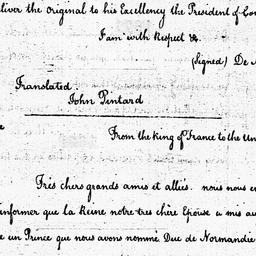 liver the original to his Excellency the President of Con
I am with Respect &.
(Signed) De
Translated.
John Pintard
From the King of France to the Un
Très chers grands amis et alliés. nous nous en
informer que la Reine notre très chère Epouse a mis au
e un Prince que nous avons nommé Duc de Normandie